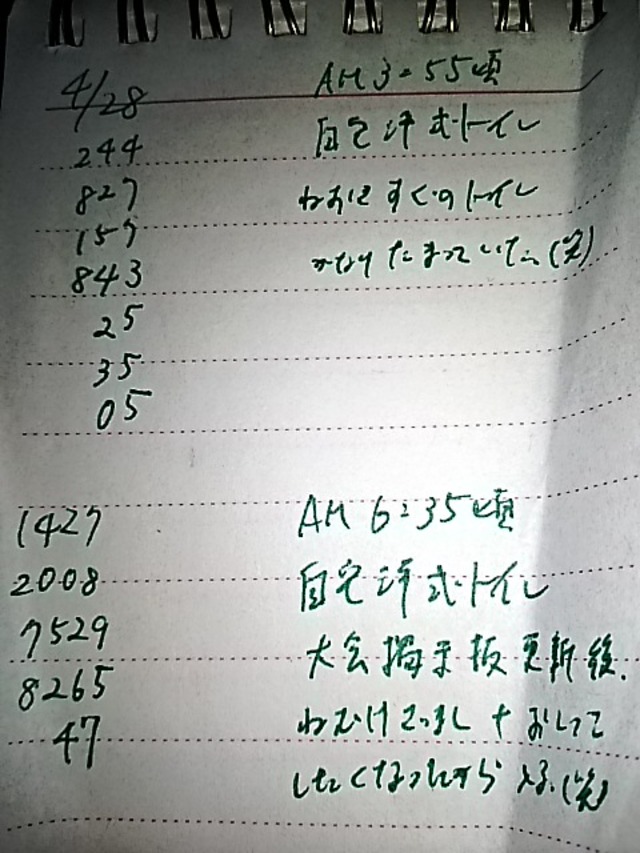 4/28 AM 3:55頃
244 自宅洋式トイレ
827 ねおきすぐのトイレ
157 かなりたまっていた(笑)
843
25
35
05
1427 AM 6:35頃
2008 自宅洋式トイレ
7529 大会掲示板更新後.
8265 ねむけざまし + おしっこ
47 したくなったから (笑)